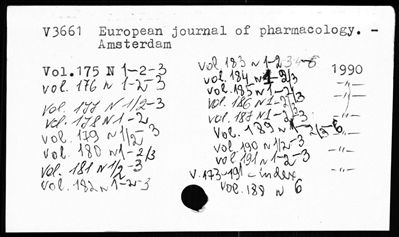 V3661 European journal of pharmacology. -
Amsterdam
Vol. 175 N 1-2-3
vol. 176 N 1-2-3
vol. 177 N 1/2-3
vol. 178 N 1-2
vol. 179 N 1/2-3
vol. 180 N 1-2/3
vol. 181 N 1/2-3
vol. 182 N 1-2-3
vol. 183 N 1-2-3-6
vol. 184 N 1-2/3
vol. 185 N 1-2/
vol. 186 N 1-2/3
vol. 187 N 1-2/3
vol. 189 N 1-2/3-6
vol. 190 N 1/2-3
vol. 191 N 1-2-3
v. 173-191 - index
vol. 188 N 6
1990
-"-
-"-
-"-
-"-
-"-
-"-